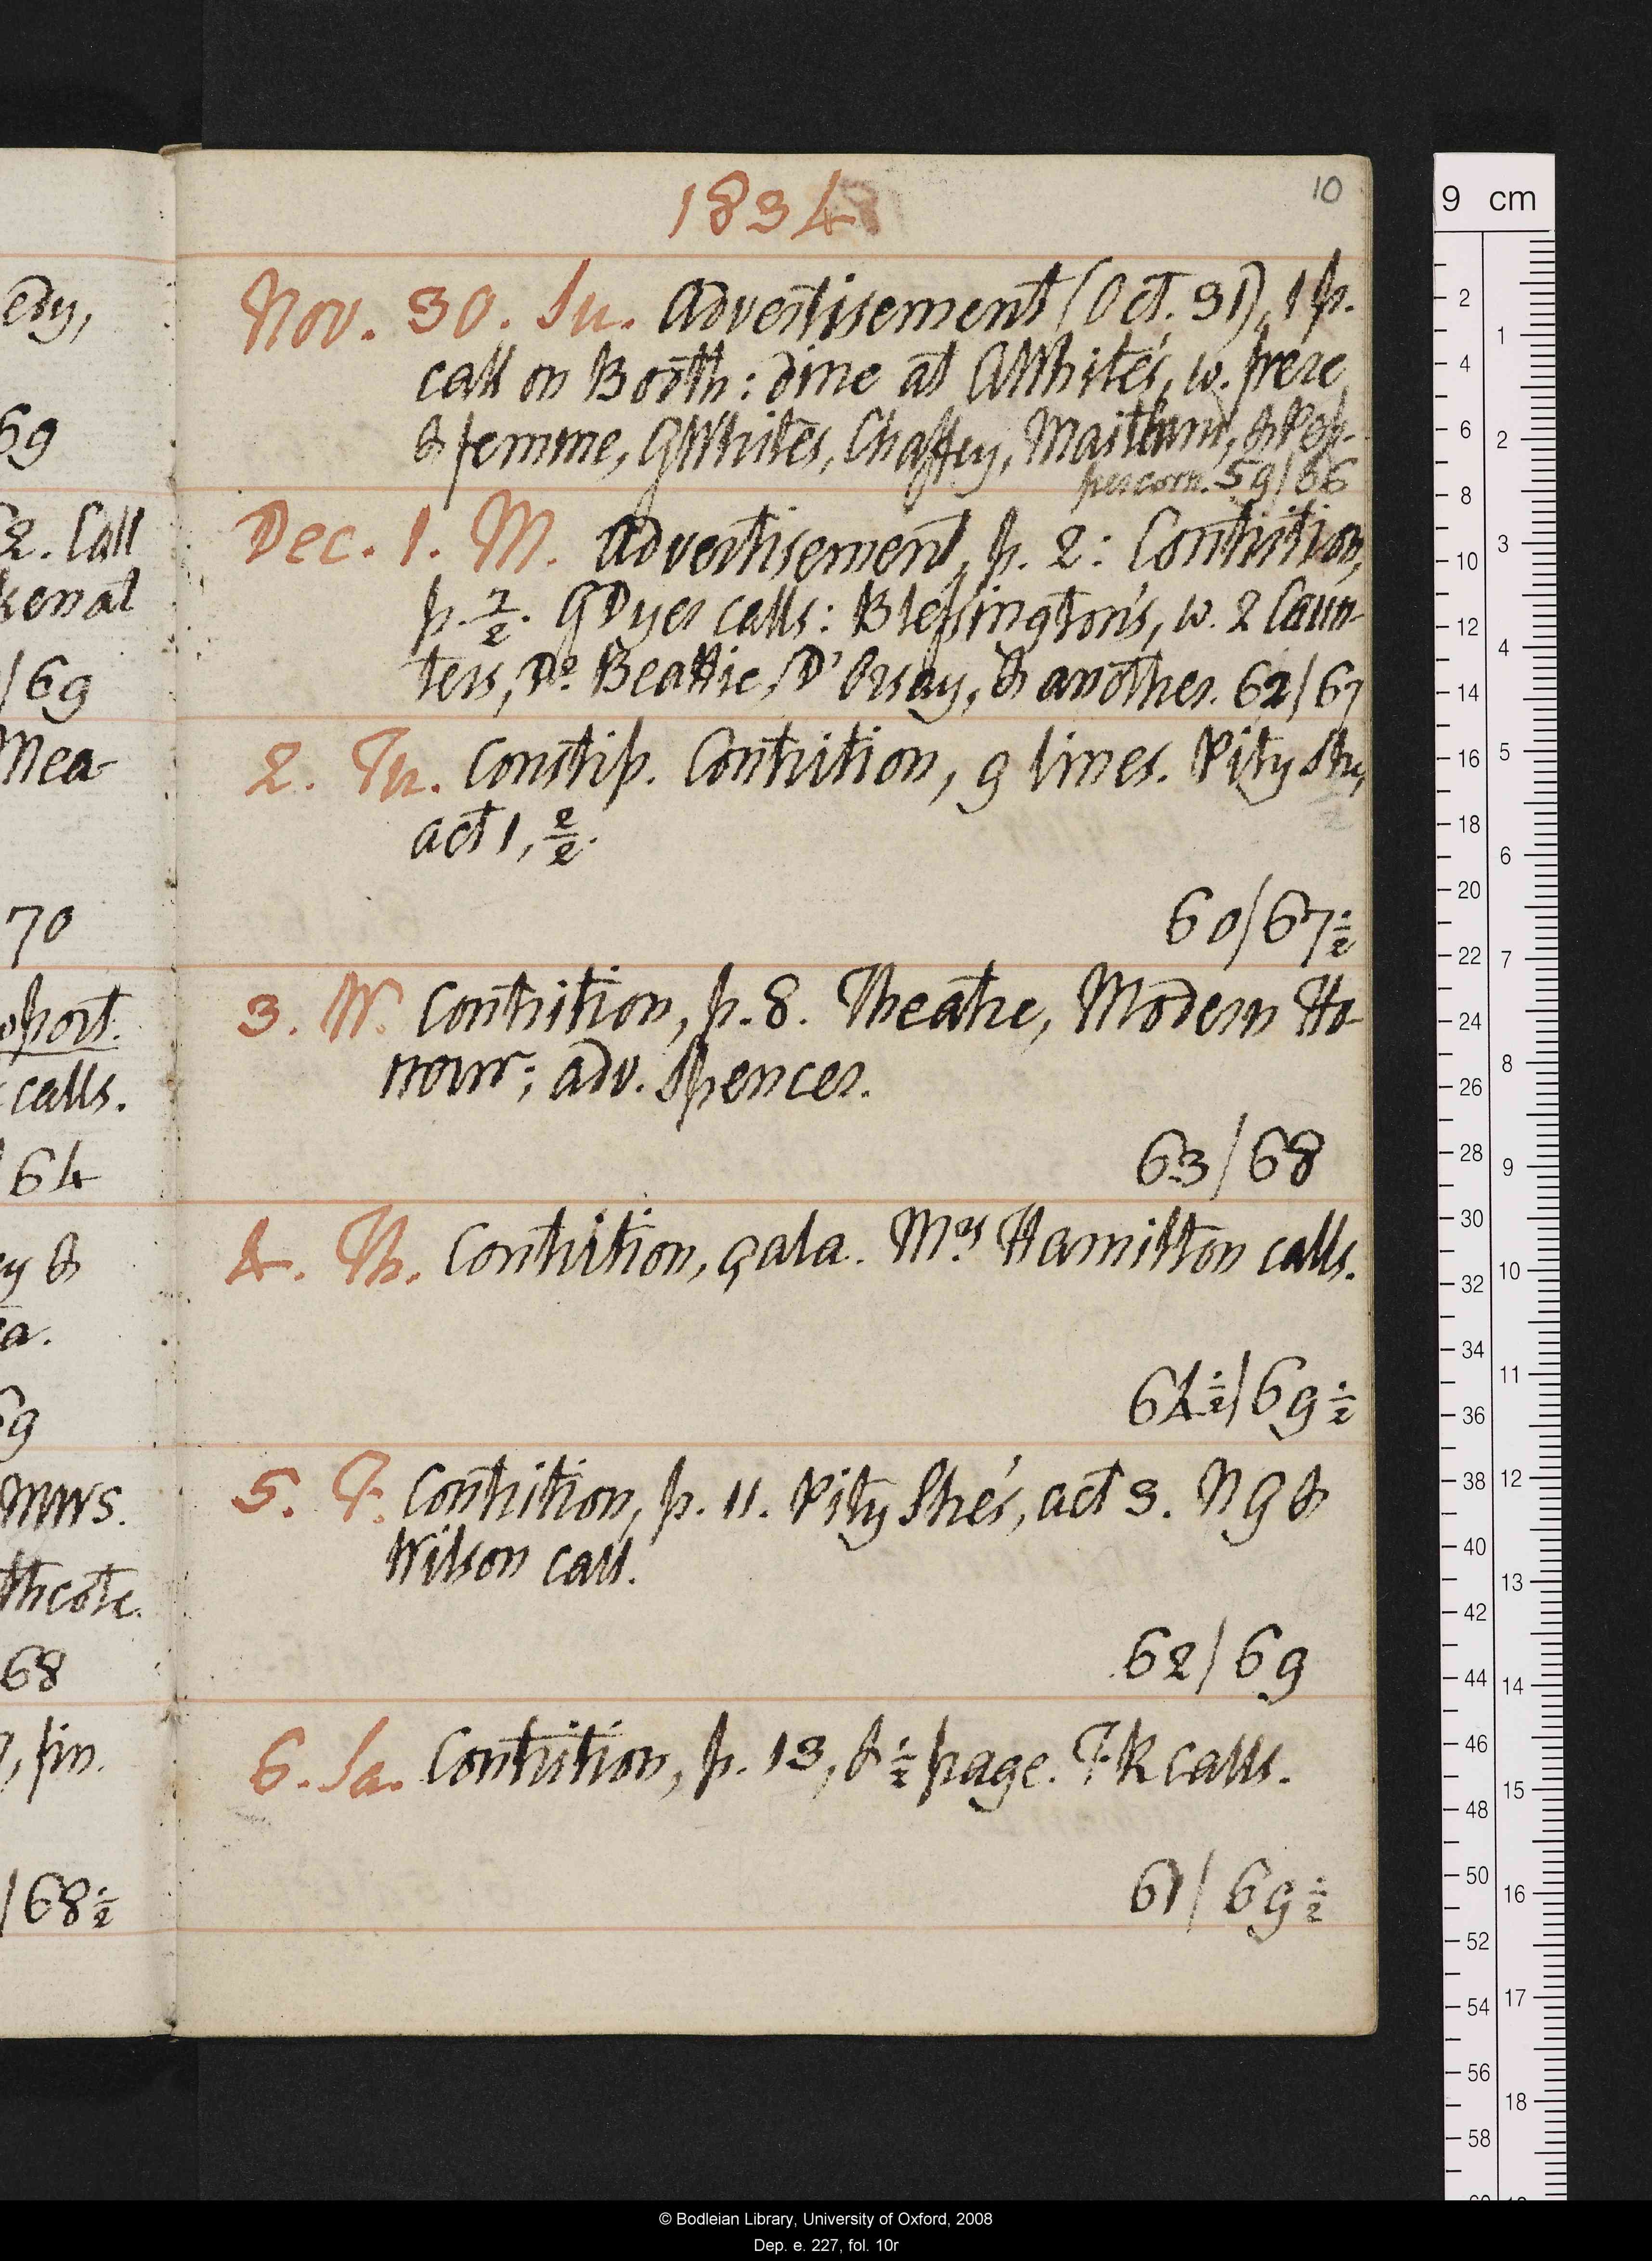 1834
10
Nov. 30. Su. Advertisement (Oct. 31), 1 p.
call on Booth: dine at AWhite's, w. frere
& femme, GWhites, Chaffey, Maitland, & Pep-
percorn. 59/66
Dec. 1. M. Advertisement, p. 2: Contrition,
p. 2/2. GDyer calls: Blessington's, w. 2 Caun-
ters, Dr Beattie, D'Orsay, & another. 62/67
2. Tu. Constip. Contrition, 9 lines. Pity She,
act 1, 2/2.
60/67½
3. W. Contrition, p. 8. Theatre, Modern Ho-
nour; adv. Spences.
63/68
4. Th. Contrition, gala. Mrs Hamilton calls.
64½/69½
5. F. Contrition, p. 11. Pity She's, act 3. NG &
Wilson call.
62/69
6. Sa. Contrition, p. 13, & ½ page. FK calls.
61/69½
edy,
69
2. Call
kenal
/69
Mea-
70
port.
calls.
64
y &
a.
69
MWS.
thcote.
68
, fin.
/68½
9 cm
2
4
6
8
10
12
14
16
18
20
22
24
26
28
30
32
34
36
38
40
42
44
46
48
50
52
54
56
58
1
2
3
4
5
6
7
8
9
10
11
12
13
14
15
16
17
18
© Bodleian Library, University of Oxford, 2008
Dep. e. 227, fol. 10r